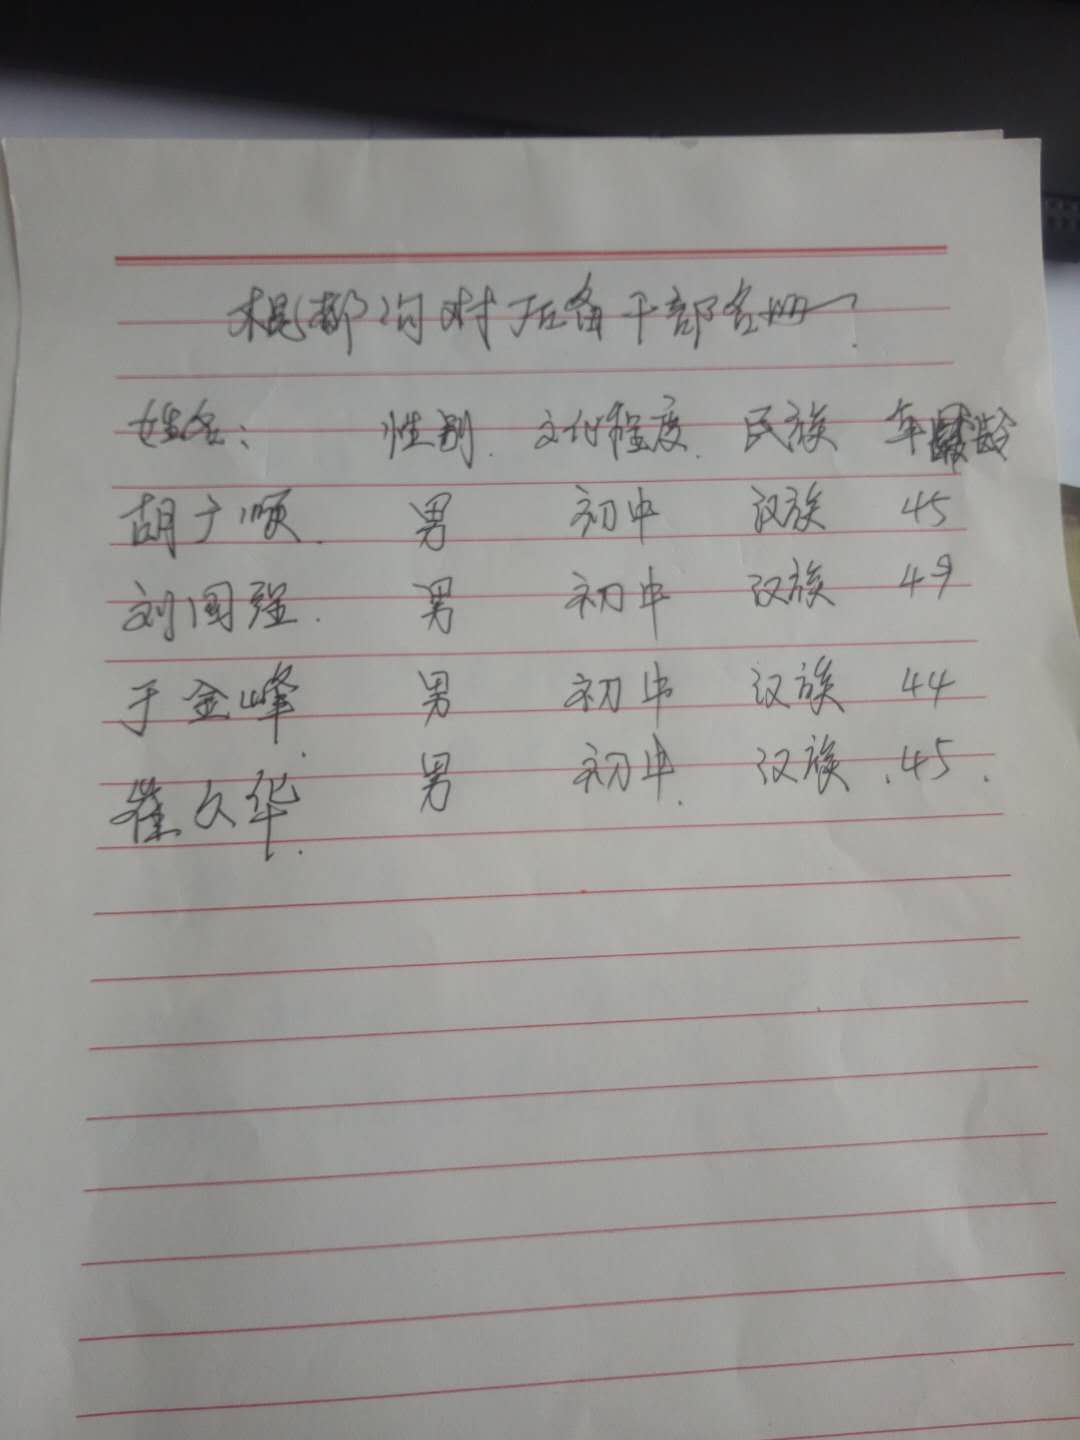 棍都沟村后备干部名册
姓名： 性别 文化程度 民族 年龄
胡广顺 男 初中 汉族 45
刘国强 男 初中 汉族 49
于金峰 男 初中 汉族 44
崔久华 男 初中 汉族 45